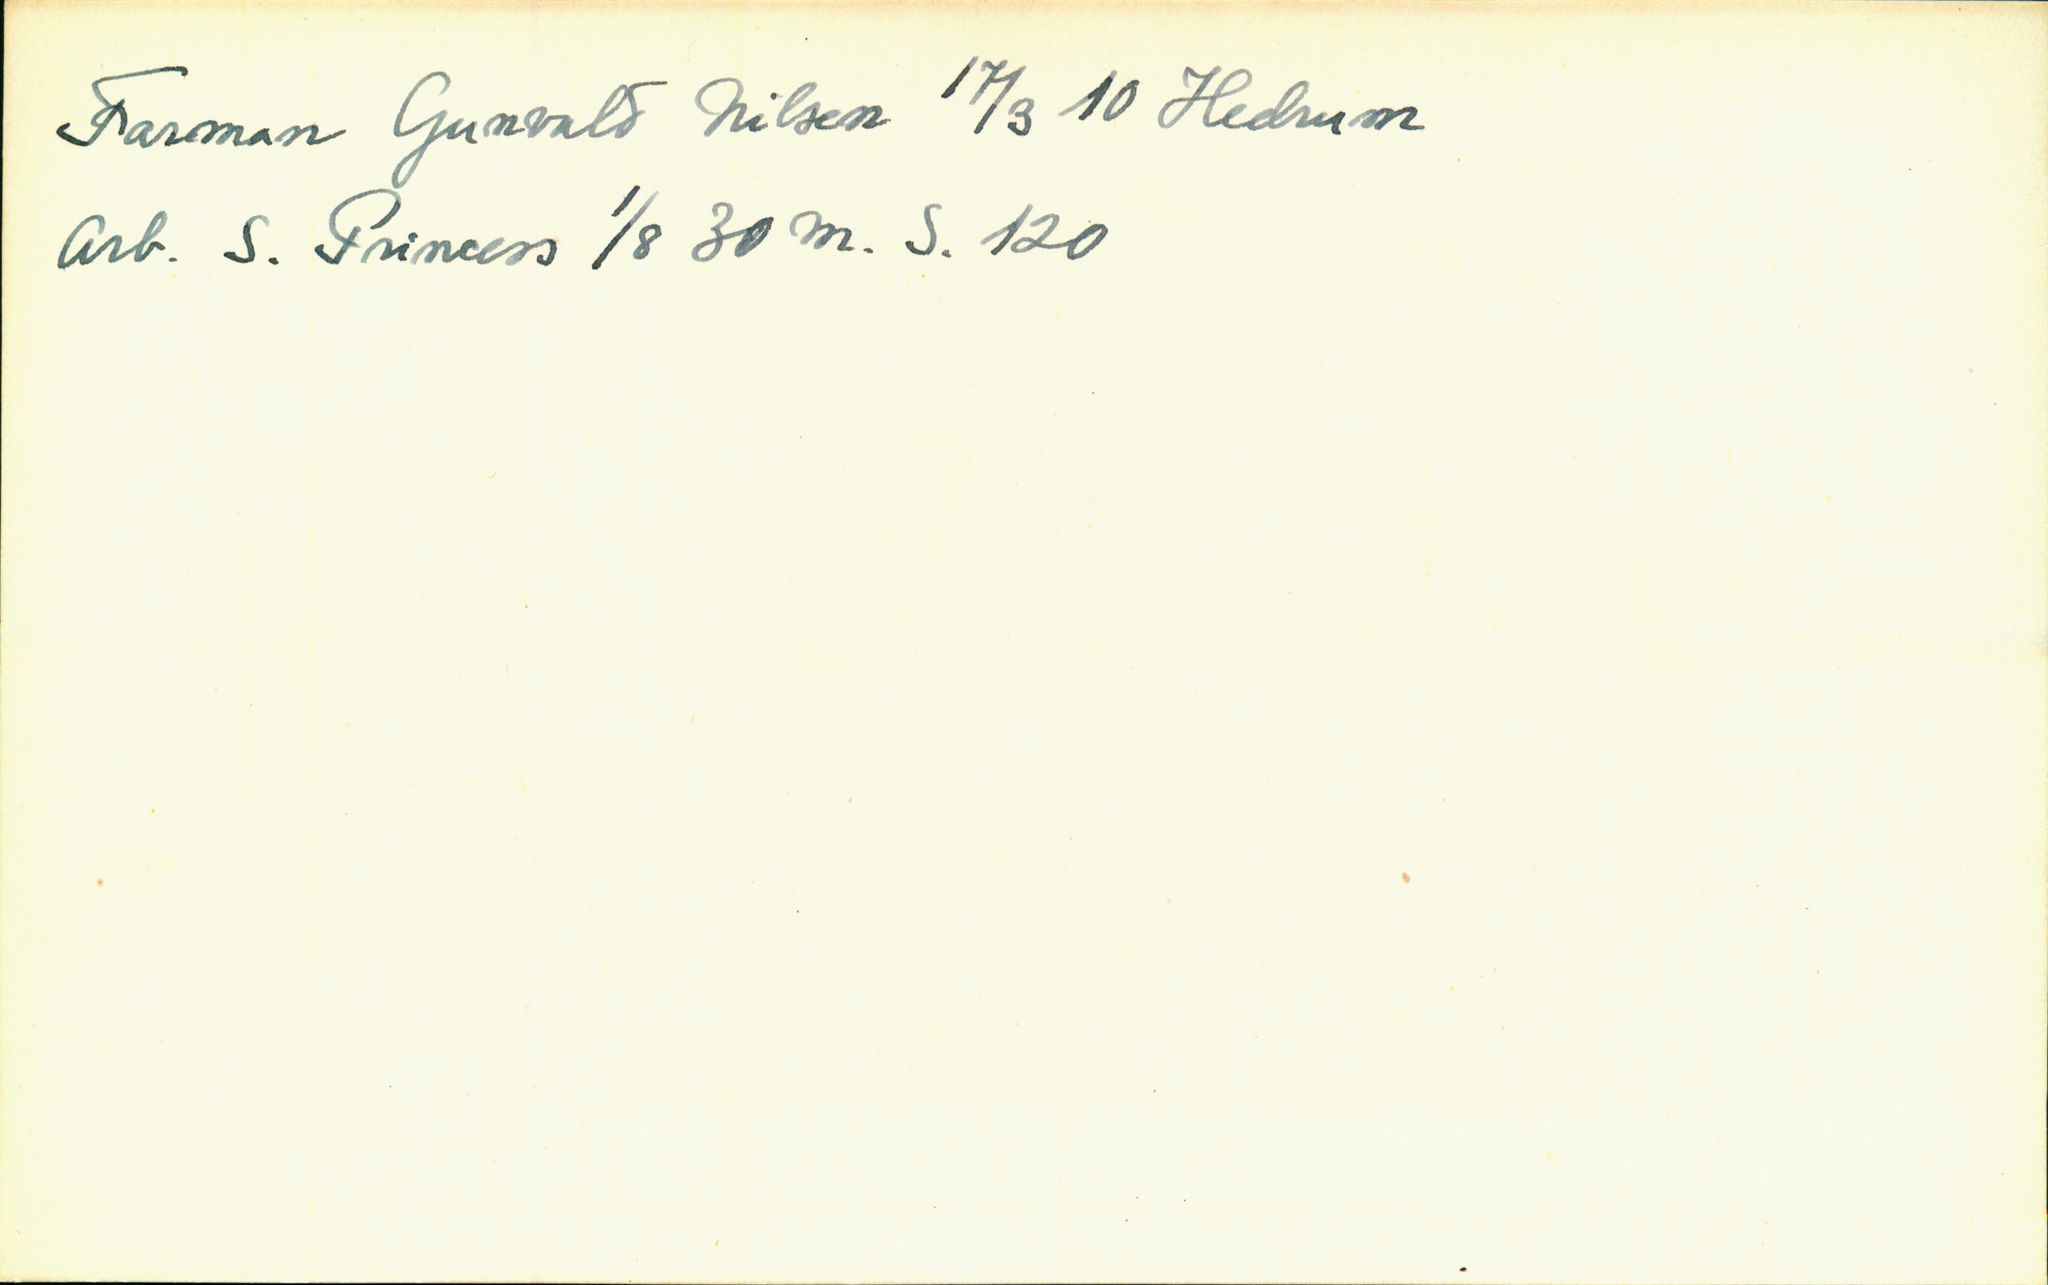 Farman Gunvald Nilsen 17/3 10 Hedrum
Arb. S. Princess 1/8 30 m. S. 120